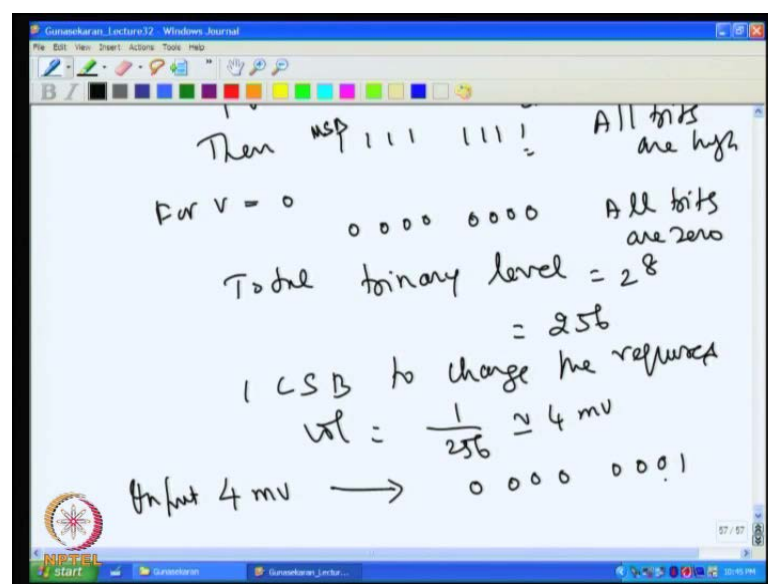 Gunasekaran_Lecture32 - Windows Journal
File Edit View Insert Actions Tools Help
B I
Then MSB 1 1 1 1 1 1 1 All bits
are high
For V = 0 0 0 0 0 0 0 0 0 All bits
are zero
Total binary level = 2^8
= 256
1 LSB to change the required
vol = 1/256 ≃ 4 mV
Input 4 mV → 0 0 0 0 0 0 0 1
57 / 57
NPTEL
start Gunasekaran Gunasekaran_Lectur... 10:45 PM